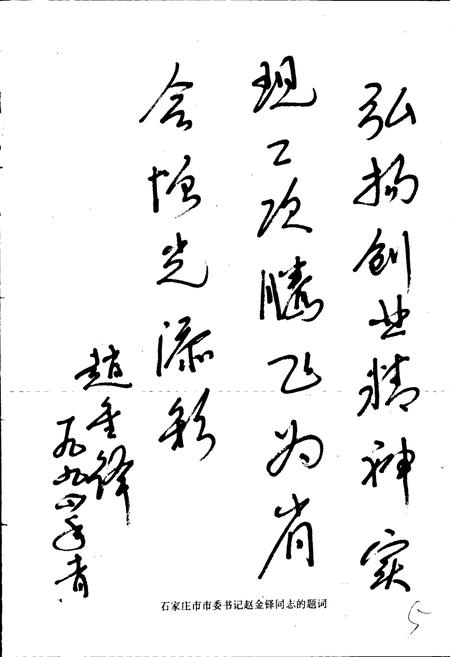 弘扬创业精神实
现二次腾飞为省
会增光添彩
赵金铎
一九九四年
石家庄市市委书记赵金铎同志的题词
5